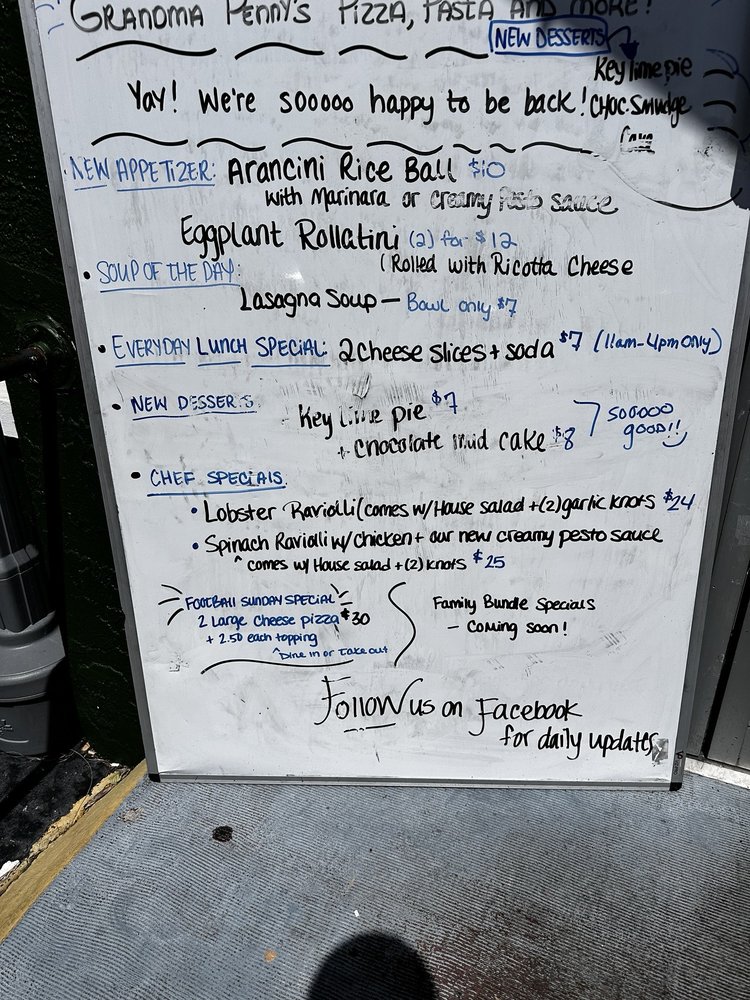 GRANDMA PENNY'S PIZZA, PASTA AND MORE!
NEW DESSERTS
Key lime pie
CHOC. Smudge
Cake
Yay! We're sooooo happy to be back!
NEW APPETIZER: Arancini Rice Ball $10
with Marinara or creamy Pesto sauce
Eggplant Rollatini (2) for $12
(Rolled with Ricotta Cheese
• SOUP OF THE DAY:
Lasagna Soup — Bowl only $7
• EVERYDAY LUNCH SPECIAL: 2 cheese slices + soda $7 (11am-4pm only)
• NEW DESSERTS
Key lime pie $7
+ chocolate mud cake $8
sooooo good!!
• CHEF SPECIALS
• Lobster Raviolli (comes w/House salad + (2) garlic knots $24
• Spinach Raviolli w/chicken + our new creamy pesto sauce
^ comes w/ House salad + (2) knots $25
FOOTBALL SUNDAY SPECIAL
2 Large Cheese pizza $30
+ 2.50 each topping
^ Dine in or take out
Family Bundle Specials
— Coming soon!
Follow us on Facebook
for daily updates